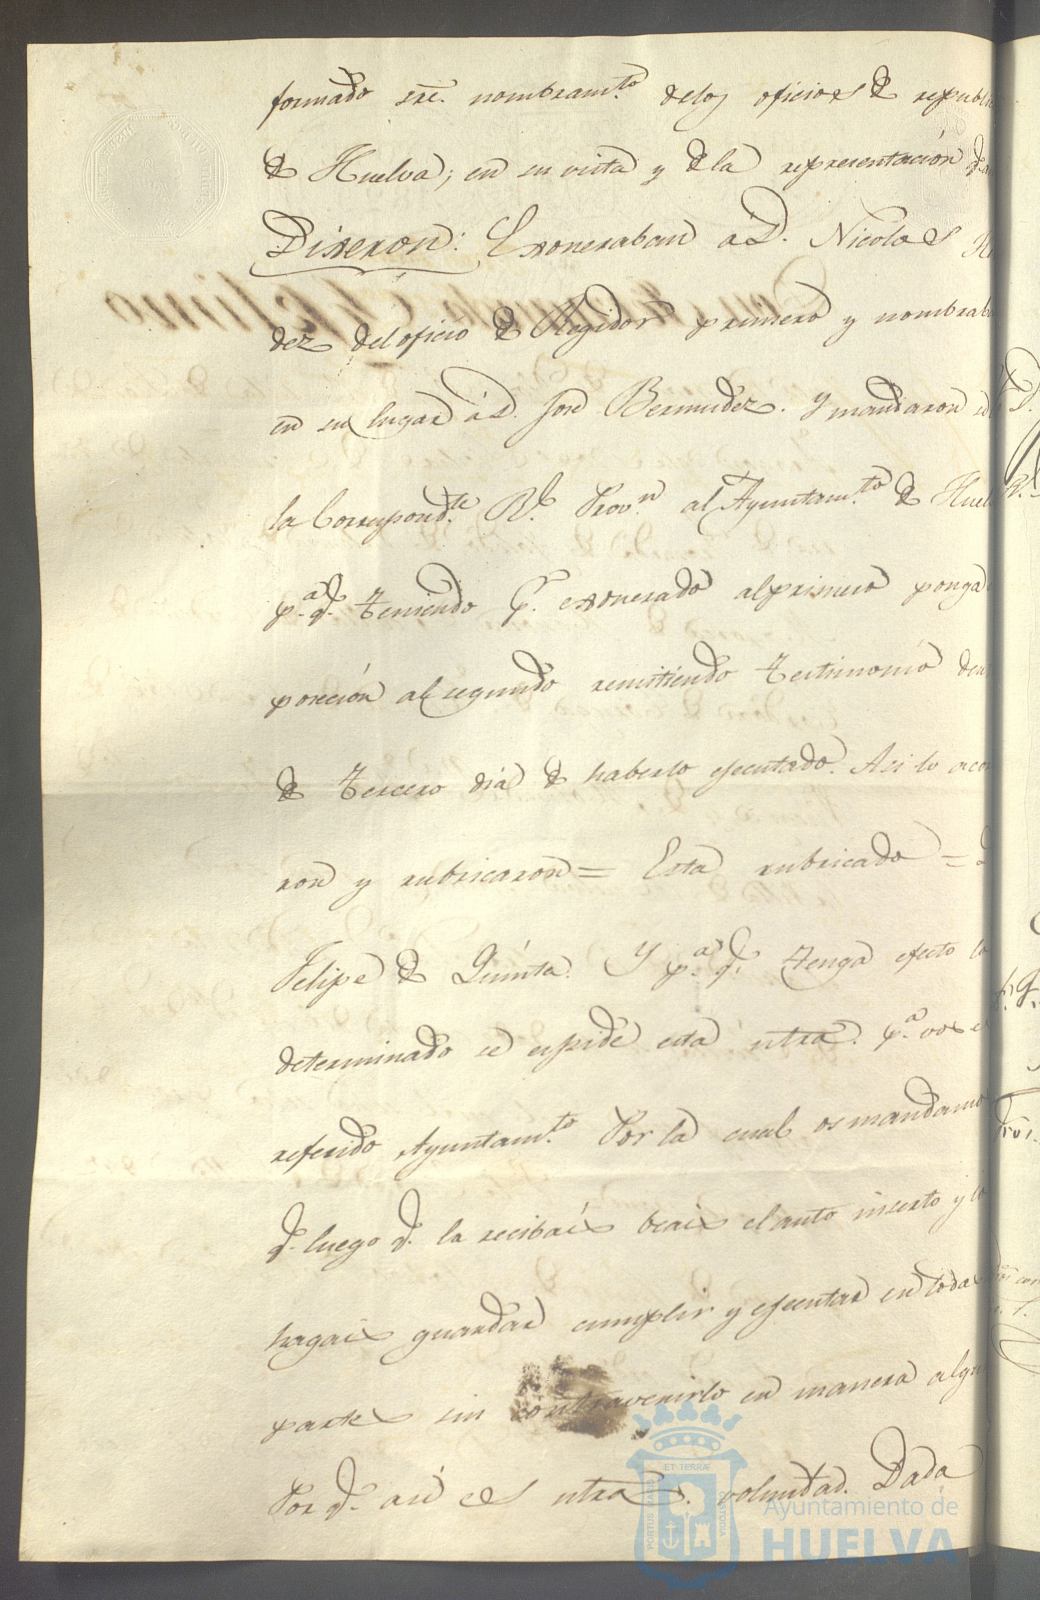 formado sre. nombramto. delos oficios de republi
de Huelva; en su vista y de la representación
Dixeron: Exoneraban á D. Nicolas
dez del oficio de Regidor primero y nombrab
en su lugar á D. José Bermudez. Y mandaron
la Correspondte. Rl. Provn. al Ayuntamto. de Huel
pa. q. teniendo pr. exonerado al primero ponga
poseción al segundo remitiendo testimonio den
de tercero dia de haberlo ejecutado. Asi lo acor
ron y rubricaron = Está rubricado =
Felipe de Quinta. Y pa. q. tenga efecto lo
determinado se espide esta ntra. pa. vos el
referido Ayuntamto. Por la cual os mandamo
q. luego q. la recibais beais el auto inserto y lo
hagais guardar cumplir y ejecutar en todas
partes sin contravenirlo en manera algu
Por q. así es ntra. voluntad. Dada
PORTUS MARIS ET TERRÆ CUSTODIA
Ayuntamiento de
HUELVA